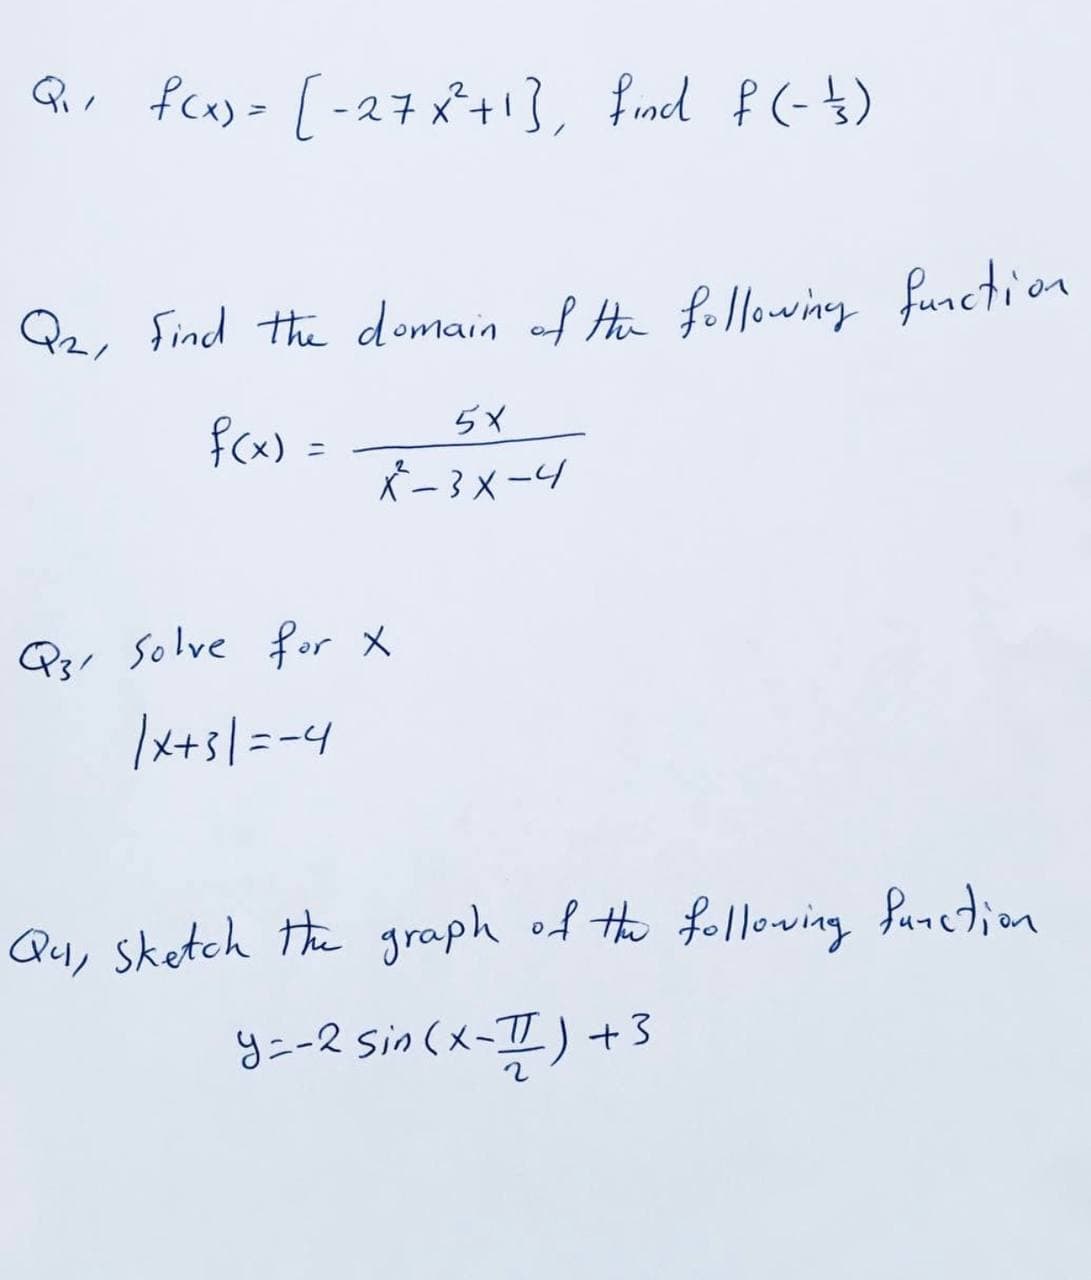 Q1, f(x) = [-27x²+1], find f(-1/3)
Q2, Find the domain of the following function
f(x) = 5x / x²-3x-4
Q3, Solve for x
|x+3|=-4
Q4, Sketch the graph of the following function
y=-2 sin(x-π/2)+3